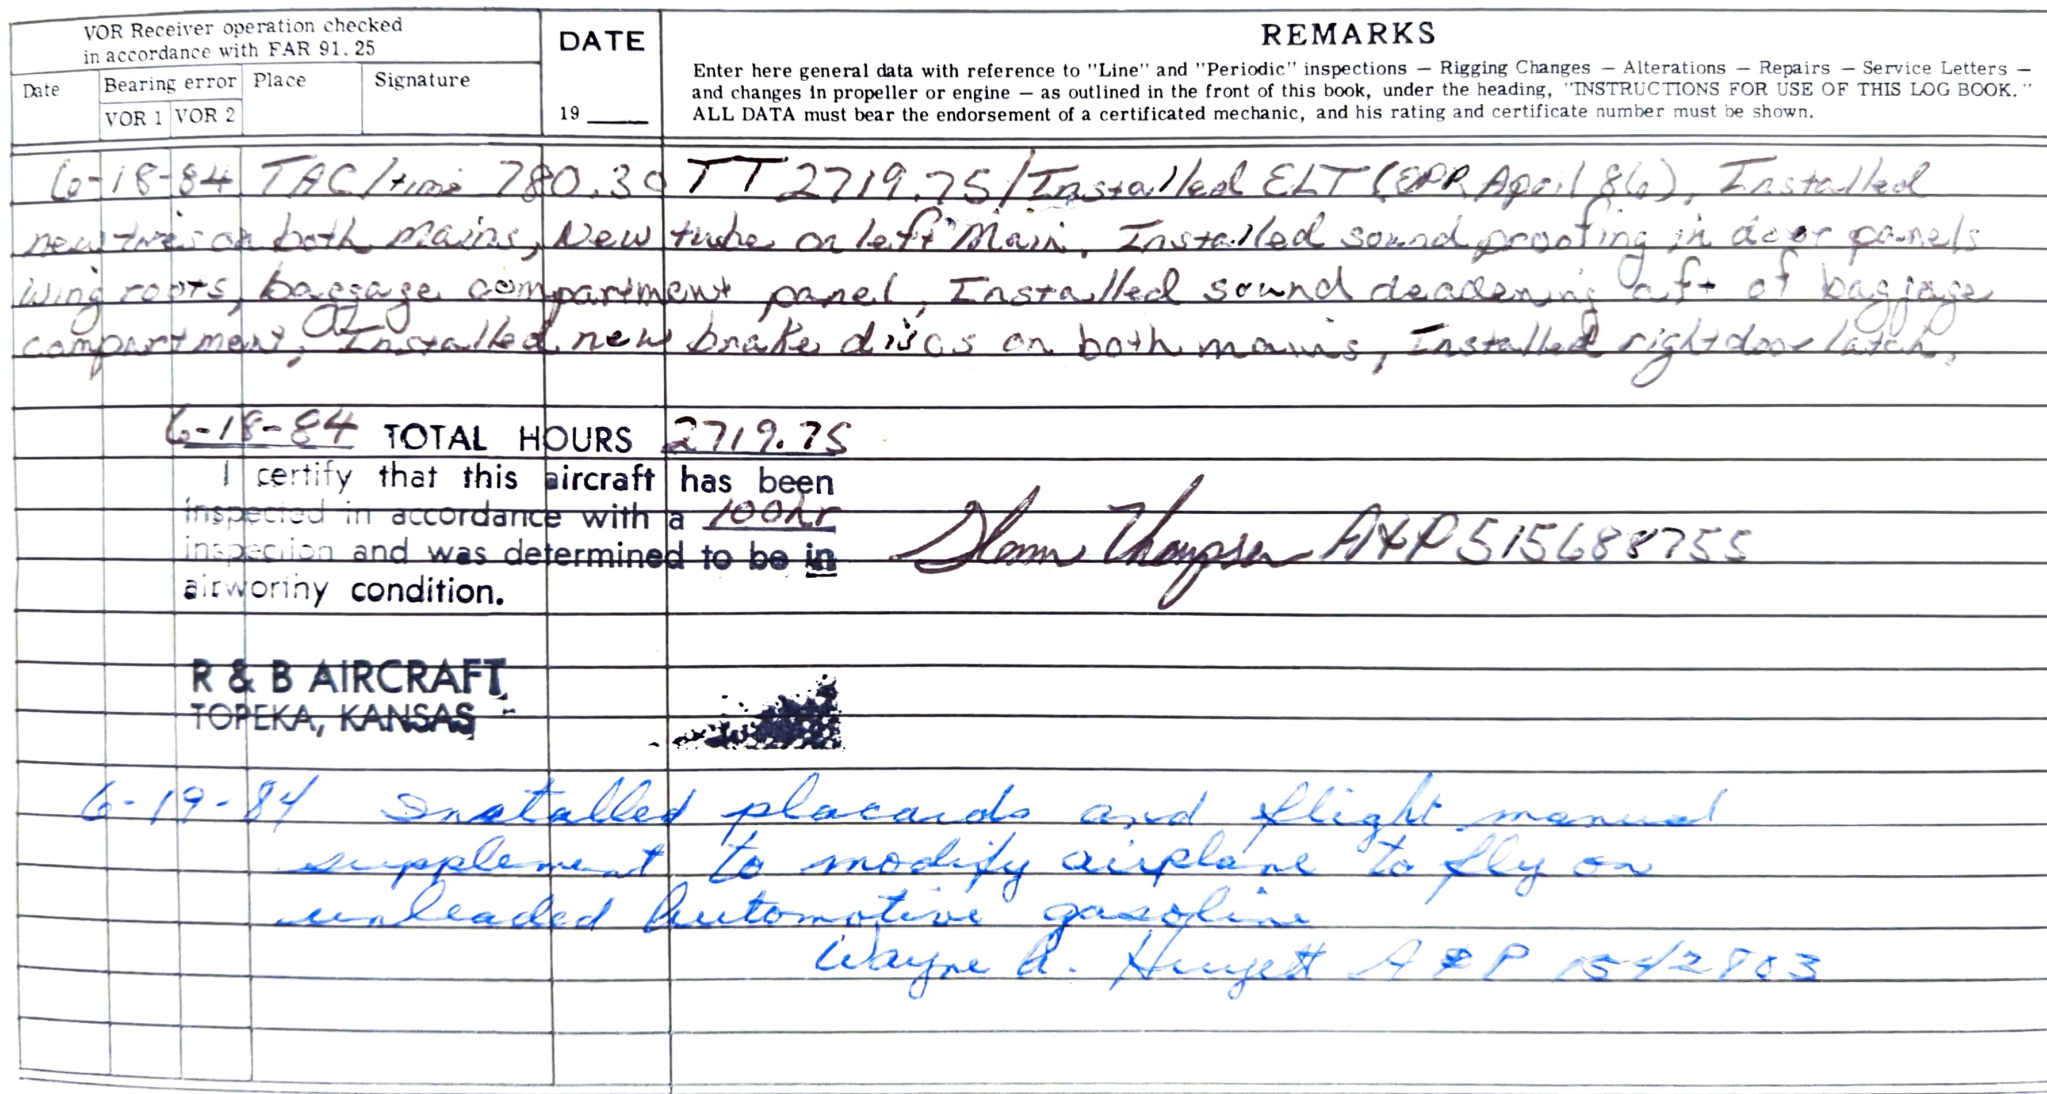 VOR Receiver operation checked
in accordance with FAR 91.25
Date
Bearing error
Place
Signature
VOR 1 VOR 2
DATE
19
REMARKS
Enter here general data with reference to "Line" and "Periodic" inspections — Rigging Changes — Alterations — Repairs — Service Letters —
and changes in propeller or engine — as outlined in the front of this book, under the heading, "INSTRUCTIONS FOR USE OF THIS LOG BOOK."
ALL DATA must bear the endorsement of a certificated mechanic, and his rating and certificate number must be shown.
6-18-84 TAC/time 780.30 TT 2719.75/Installed ELT (EPR April 86), Installed
new tires on both mains, New tube on left Main, Installed sound proofing in door panels
wing roots, baggage compartment panel, Installed sound deadening aft of baggage
compartment, Installed new brake discs on both mains, Installed right door latch,
6-18-84 TOTAL HOURS 2719.75
I certify that this aircraft has been
inspected in accordance with a 100hr
inspection and was determined to be in
airworthy condition.
Thompson A&P 515688755
R & B AIRCRAFT
TOPEKA, KANSAS
6-19-84 Installed placards and flight manual
supplement to modify airplane to fly on
unleaded Automotive gasoline
Wayne A. A&P 1542803